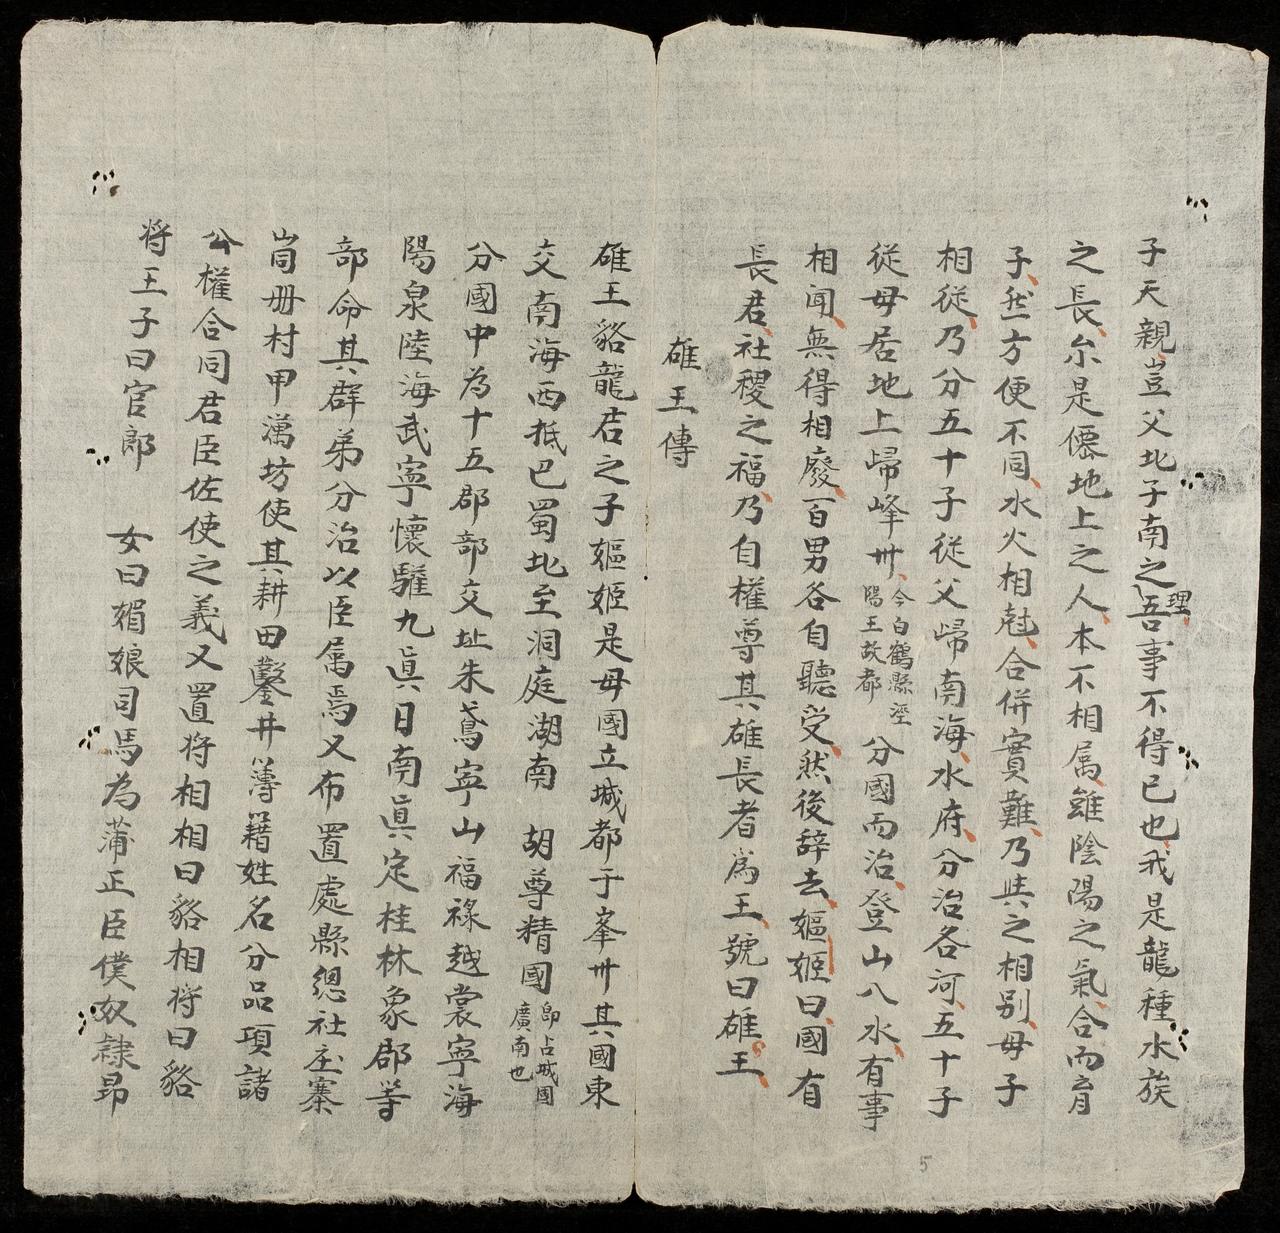 子天親豈父北子南之理吾事不得已也我是龍種水族
之長尔是僊地上之人本不相属雖陰陽之氣合而育
子然方便不同水火相尅合併實難乃與之相别母子
相從乃分五十子從父歸南海水府分治各河五十子
從母居地上歸峰州今白鶴縣涇陽王故都分國而治登山八水有事
相闻無得相廢百男各自聽受然後辞去嫗姬曰國有
長君社稷之福乃自權尊其雄長者爲王號曰雄王
雄王傳
雄王貉龍君之子嫗姬是母國立城都于峯州其國東
交南海西抵巴蜀北至洞庭湖南 胡尊精國即占城國廣南也
分國中為十五郡部交址朱鳶寜山福祿越裳寜海
陽泉陸海武寜懷驩九眞日南眞定桂林象郡等
部命其群弟分治以臣属焉又布置處縣總社庄寨
峝册村甲澫坊使其耕田鑿井簿籍姓名分品項諸
公權合同君臣佐使之義又置将相相曰貉相将曰貉
将王子曰官郎 女曰媚娘司馬為蒲正臣僕奴隷昂
5